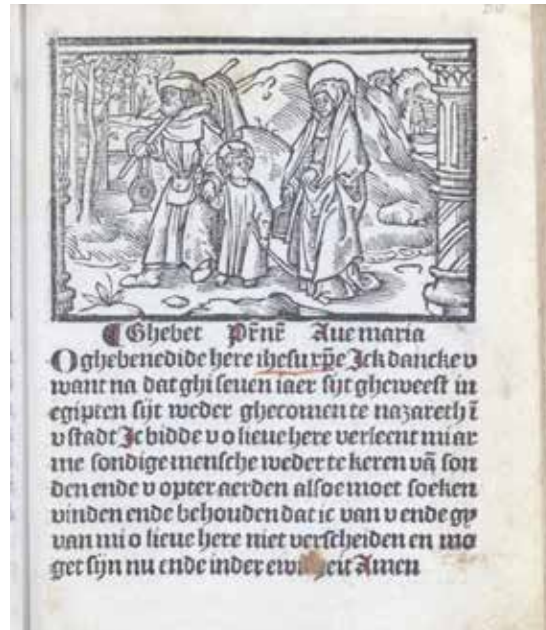 ¶ Ghebet Pr̄nr̄ Aue maria
O ghebenedide here ihesu xp̄e Ick dancke v
want na dat ghi seuen iaer sijt gheweest in
egipten sijt weder ghecomen te nazareth ī
v stadt Ic bidde v o lieue here verleent mi ar
me sondige mensche weder te keren vā son
den ende v opter aerden alsoe moet soeken
vinden ende behouden dat ic van v ende gy
van mi o lieue here niet verscheiden en mo
get sijn nu ende inder ewicheit Amen